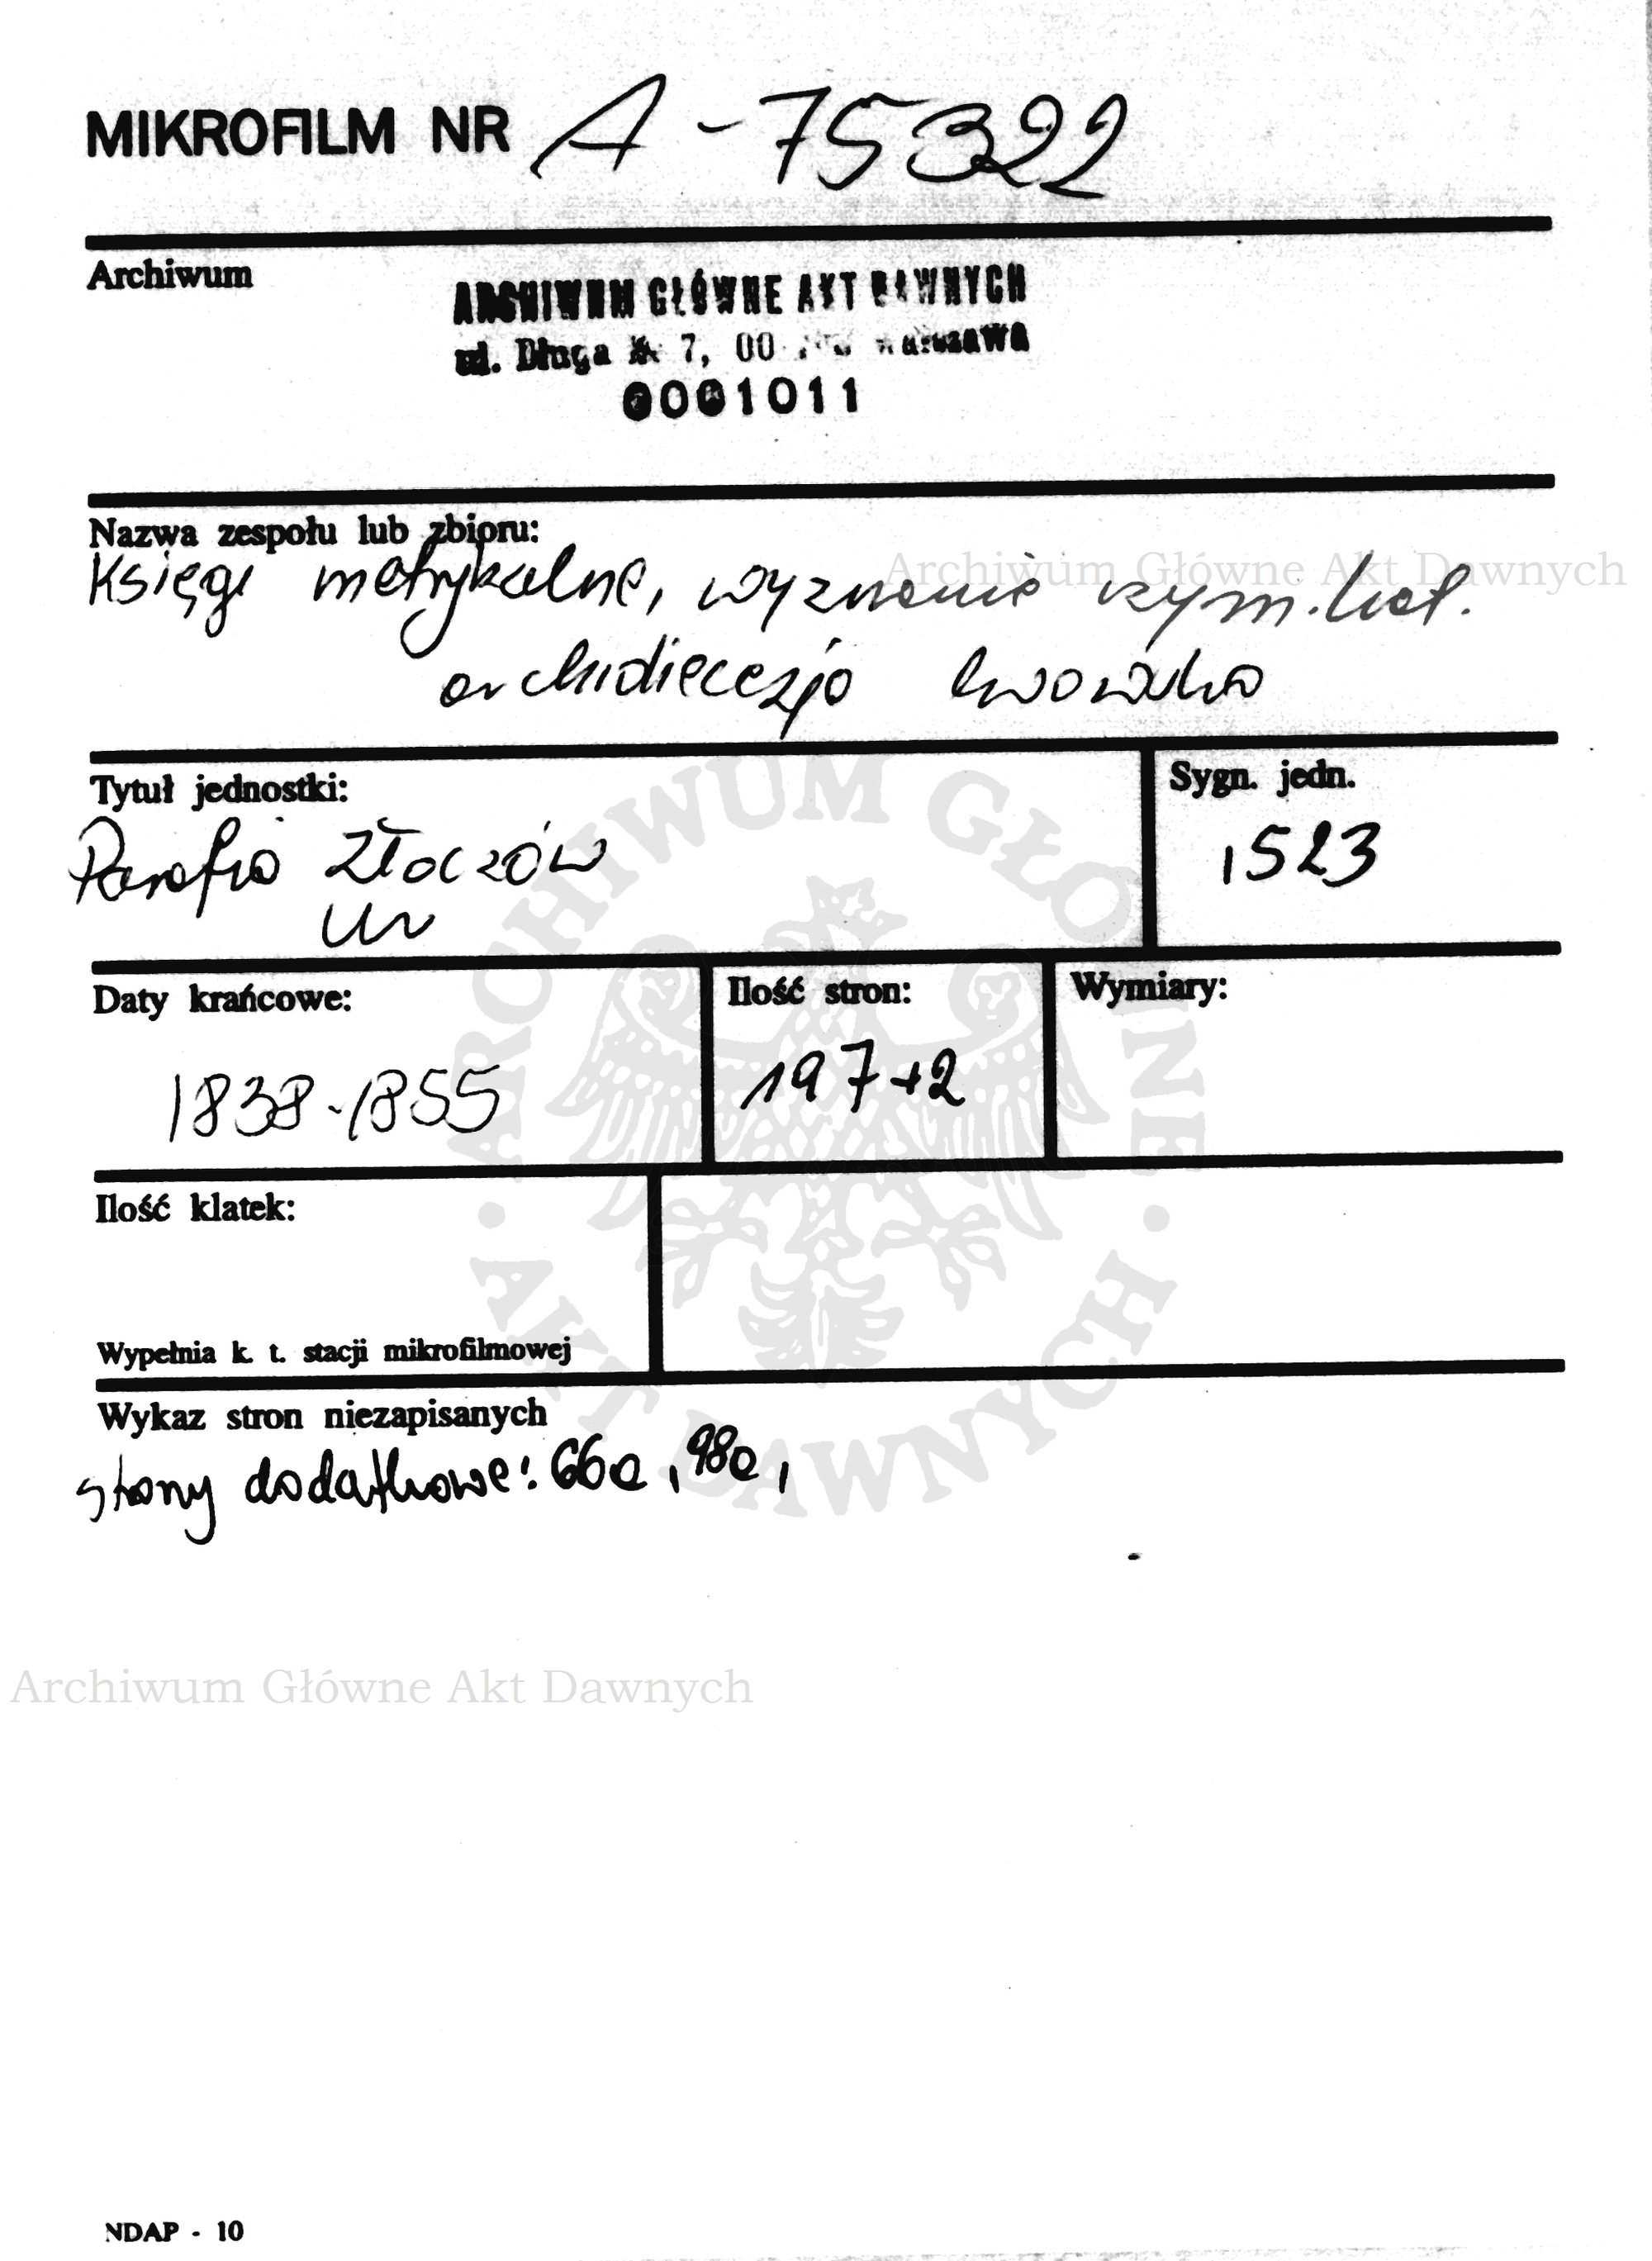 MIKROFILM NR A-75322
Archiwum
ARCHIWUM GŁÓWNE AKT DAWNYCH
ul. Długa 7, 00 Warszawa
0001011
Nazwa zespołu lub zbioru:
Archiwum Główne Akt Dawnych
Księgi metrykalne, wyznanie rzym.kat.
archidiecezja lwowska
Tytuł jednostki:
Sygn. jedn.
Parafia Złoczów
1523
ur
Daty krańcowe:
Ilość stron:
Wymiary:
1838-1855
197+2
Ilość klatek:
Wypełnia k. t. stacji mikrofilmowej
Wykaz stron niezapisanych
strony dodatkowe: 66a, 98a,
ARCHIWUM GŁÓWNE · AKT DAWNYCH ·
Archiwum Główne Akt Dawnych
NDAP - 10